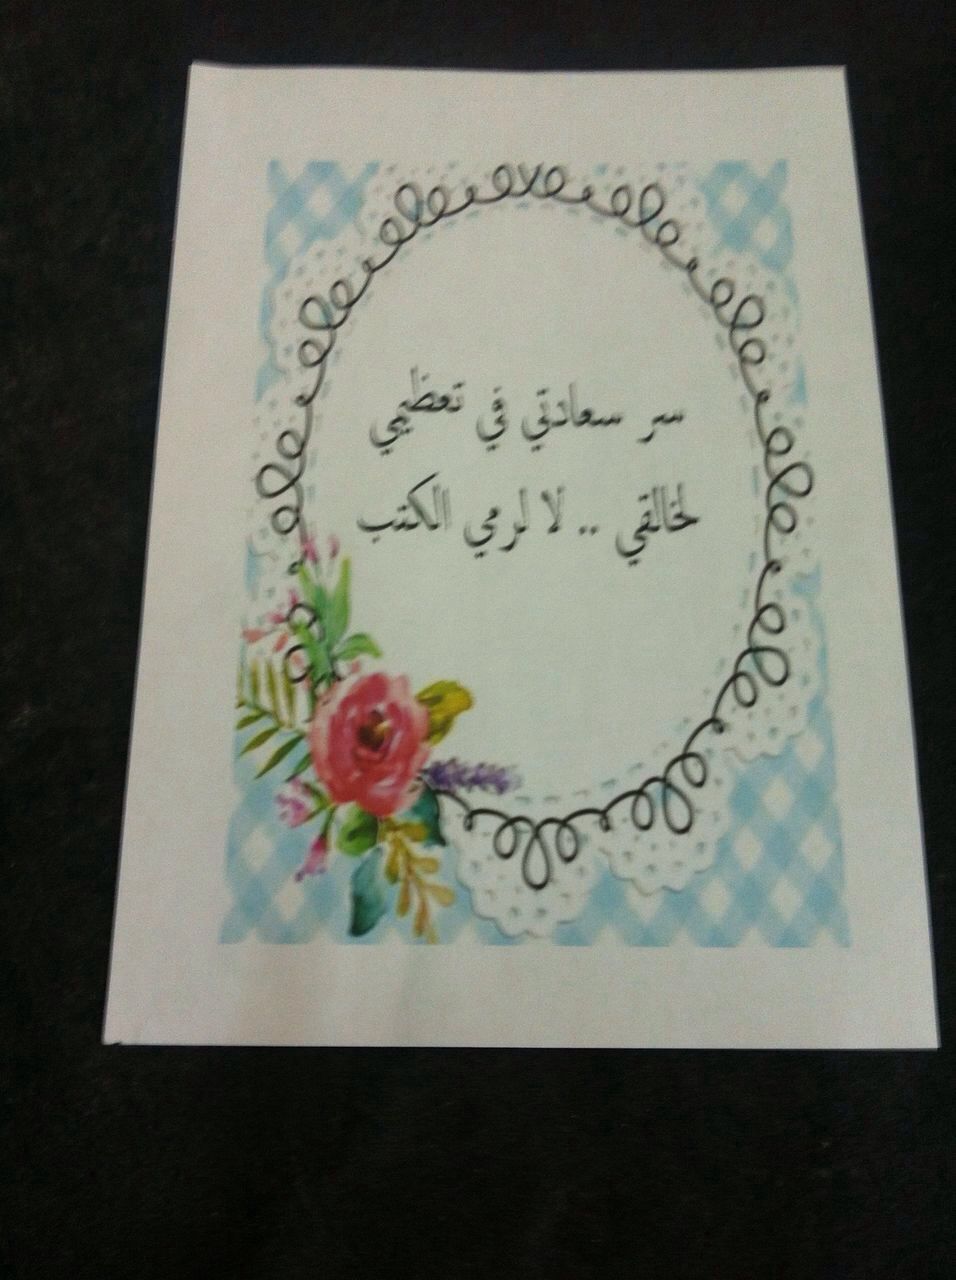 سر سعادتي في تعظيمي
لخالقي .. لا لرمي الكتب